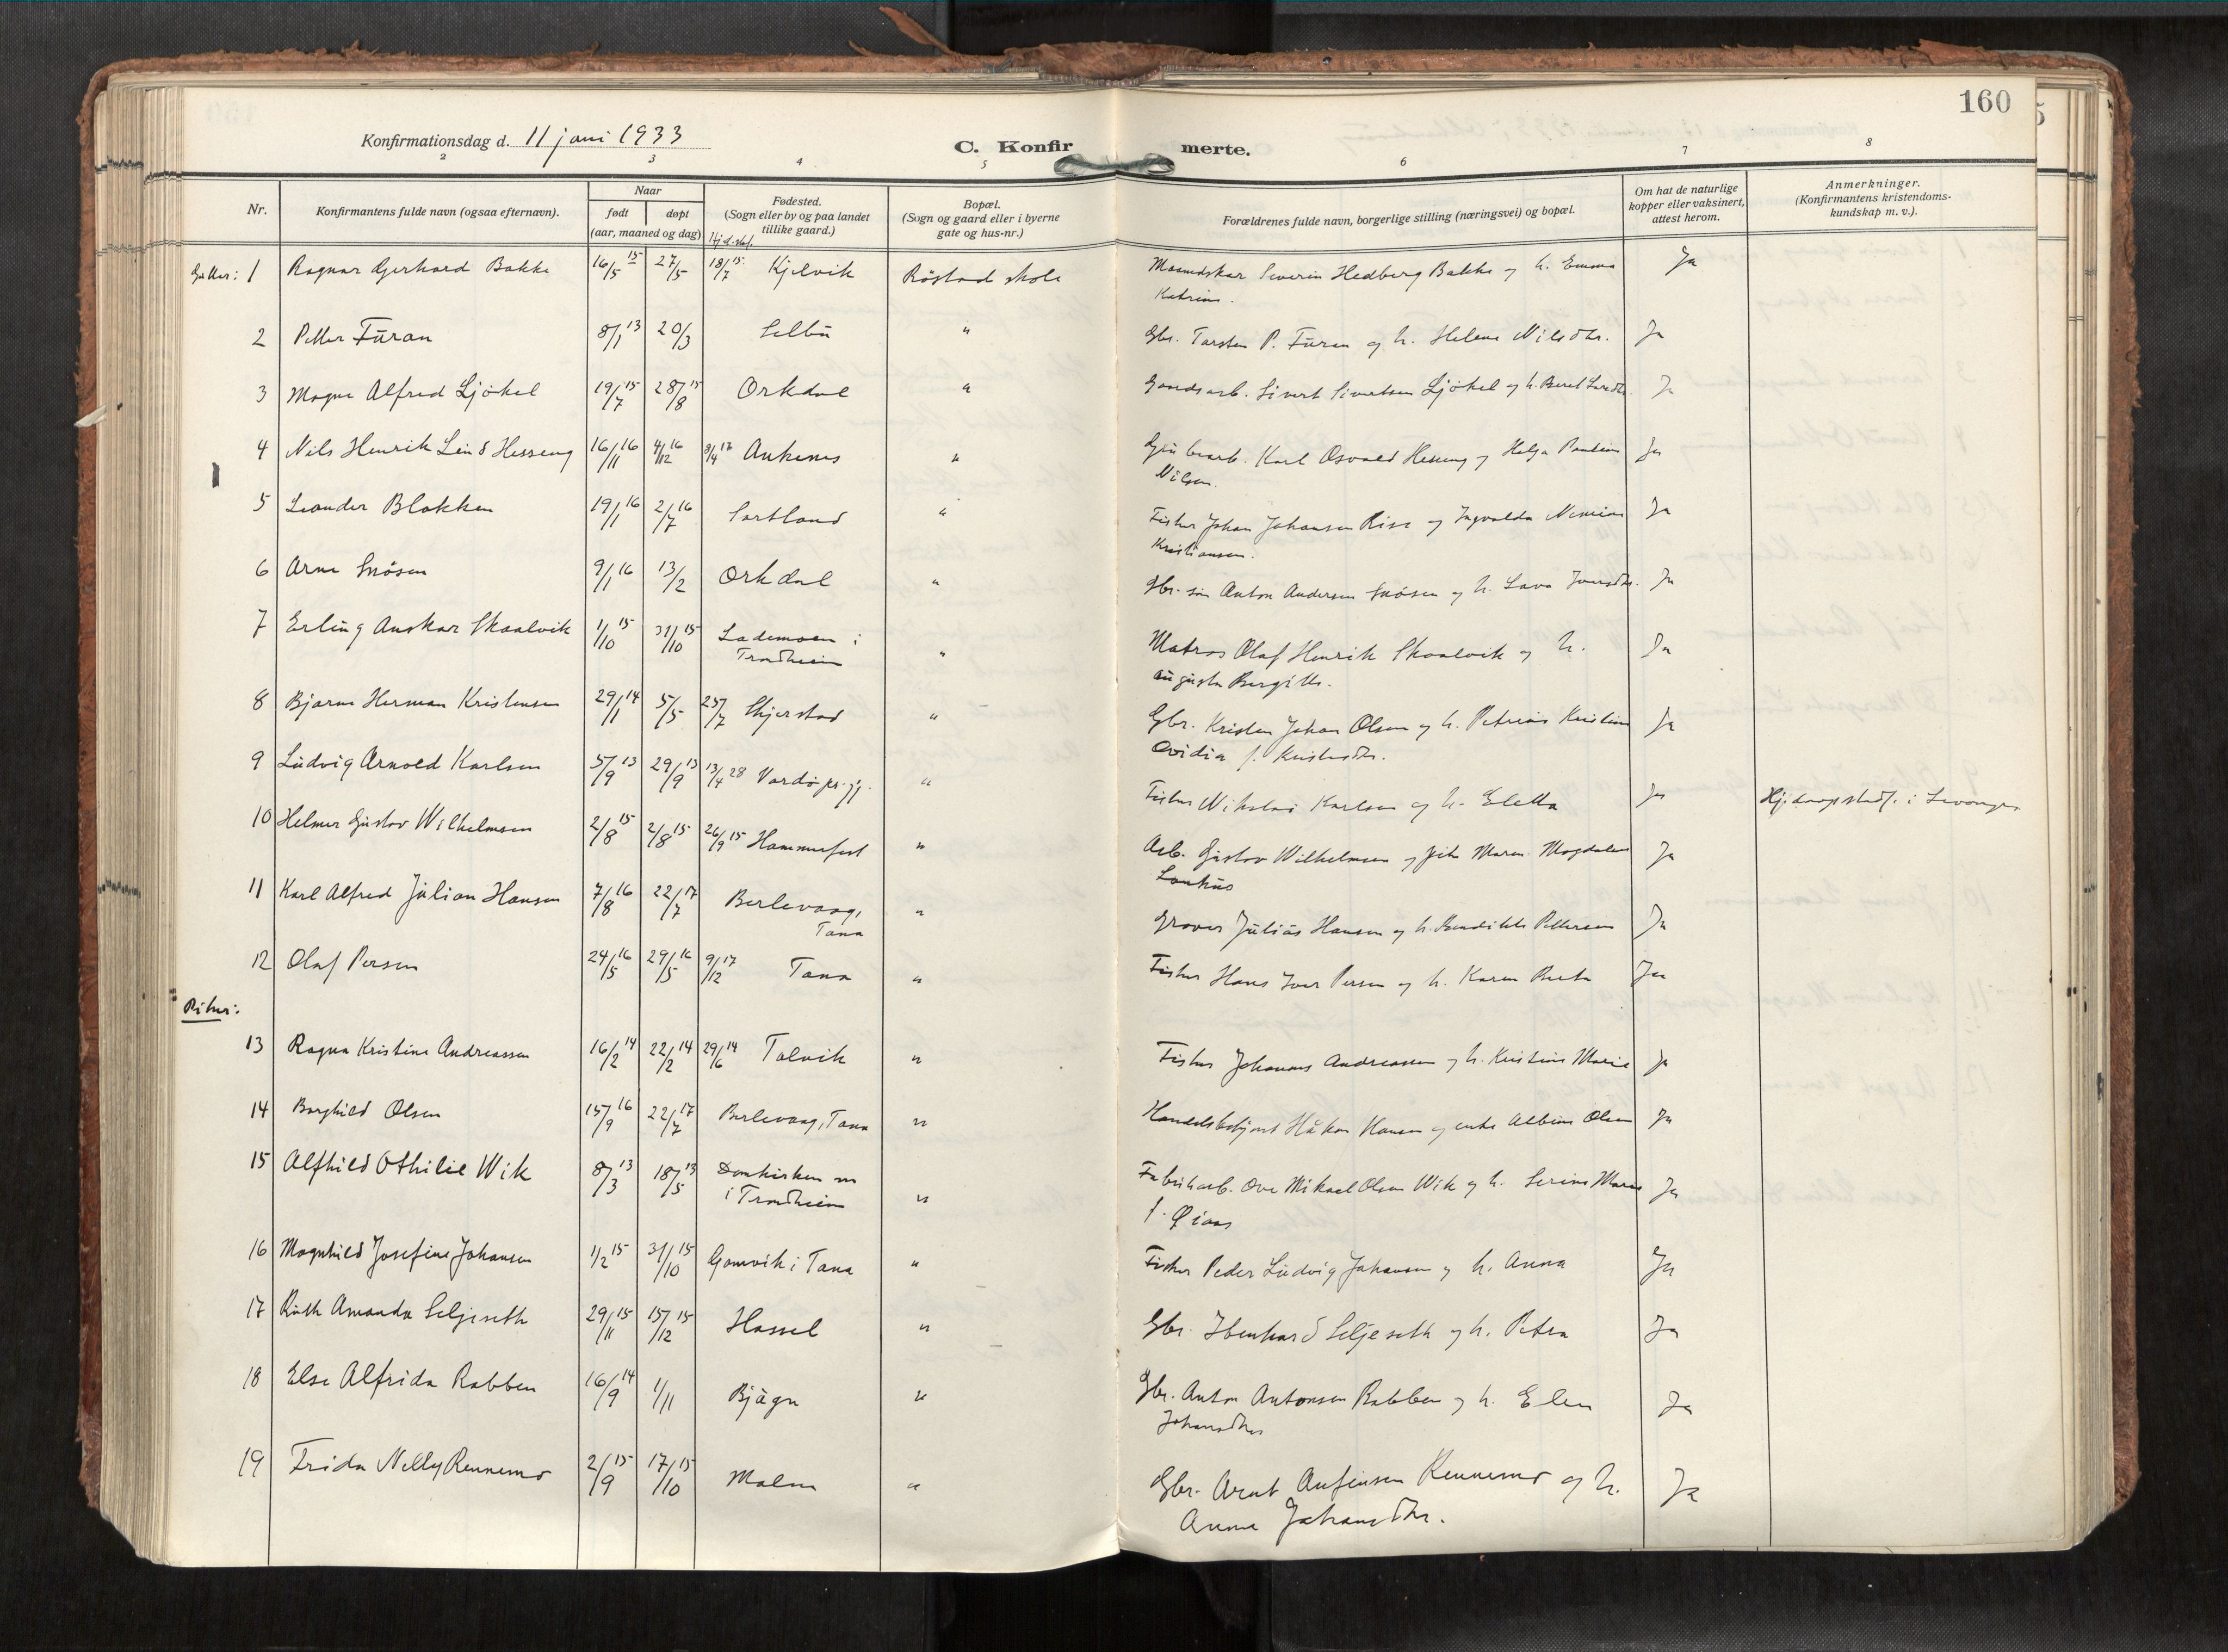 160
Konfirmationsdag d. 11 juni 1933
C. Konfirmerte.
2 3 4 5 6 7 8
Nr.
Konfirmantens fulde navn (ogsaa efternavn).
Naar
født døpt
(aar, maaned og dag)
Fødested.
(Sogn eller by og paa landet
tillike gaard.)
Bopæl.
(Sogn og gaard eller i byerne
gate og hus-nr.)
Forældrenes fulde navn, borgerlige stilling (næringsvei) og bopæl.
Om hat de naturlige
kopper eller vaksinert,
attest herom.
Anmerkninger.
(Konfirmantens kristendoms-
kundskap m. v.).
Hj.d.stf.
Gutter: 1 Ragnar Gerhard Bakke 16/5 15 27/5 18/7 15 Kjelvik Röstad skole Severin Hedberg Bakke og h. Emma Ja
Katrine.
2 Petter Furan 8/1 13 20/3 Selbu " Gbr. Torsten P. Furan og h. Helene Nilsdtr. Ja
3 Magne Alfred Ljökel 19/7 15 28/8 15 Orkdal " Gaardsarb. Sivert Sivertsen Ljökel og h. Beret Ja
4 Nils Henrik Lind Hesseng 16/11 16 4/12 16 Ankenes " Karl Osvald Hesseng og Helga Pauline Ja
Nilsen.
5 Leander Blokken 19/1 16 2/7 16 Sortland " Fisker Johan Johansen Rise og Ingvalda Ja
Kristiansen.
6 Arne Snösen 9/1 16 13/2 Orkdal " Gbr. sön Anton Andersen Snösen og h. Ja
7 Erling Anskar Skaalvik 1/10 15 31/10 15 Lademoen i " Matros Olaf Henrik Skaalvik og h. Ja
Trondheim Augusta Bergitte.
8 Bjarne Herman Kristensen 29/1 14 5/5 25/7 Skjerstad " Gbr. Kristen Johan Olsen og h. Petrine Kristine Ja
Ovidia f. Kristensdtr.
9 Ludvig Arnold Karlsen 5/9 13 29/9 13 13/4 28 Vardö pr.gj. " Fisker Nikolai Karlsen og h. Eletta Ja Hj.daapsstadf. i Levanger
10 Helmer Gustav Wilhelmsen 2/8 15 2/8 15 26/9 15 Hammerfest " Arb. Gustav Wilhelmsen og Maren Magdalene Ja
11 Karl Alfred Julian Hansen 7/8 16 22/7 17 Berlevaag, " Graver Julius Hansen og h. Pettersen Ja
Tana
12 Olaf Persen 24/5 16 29/5 16 9/12 17 Tana " Fisker Hans Iver Persen og h. Karen Ja
Piker:
13 Ragna Kristine Andreassen 16/2 14 22/2 14 29/6 14 Talvik " Fisker Johannes Andreassen og h. Kristine Marie Ja
14 Borghild Olsen 15/9 16 22/7 17 Berlevaag, Tana " Handelsbetjent Håkon Hansen og enke Albine Olsen Ja
15 Alfhild Othilie Wik 8/3 13 18/5 13 Domkirken sn " Fabrikarb. Ove Mikael Olsen Wik og h. Serine Marie Ja
i Trondheim f. Öiaas
16 Magnhild Josefine Johansen 1/2 15 31/10 15 Gamvik i Tana " Fisker Peder Ludvig Johansen og h. Anna Ja
17 Ruth Amanda Seljeseth 29/11 15 15/12 15 Hassel " Gbr. Ibenhard Seljeseth og h. Petra Ja
18 Else Alfrida Rabben 16/9 14 1/11 Bjugn " Gbr. Anton Antonsen Rabben og h. Elen Ja
Johansdtr
19 Frida Nelly Rennemo 2/9 15 17/10 15 Malm " Gbr. Arnt Anfinsen Rennemo og h. Ja
Anna Johansdtr.